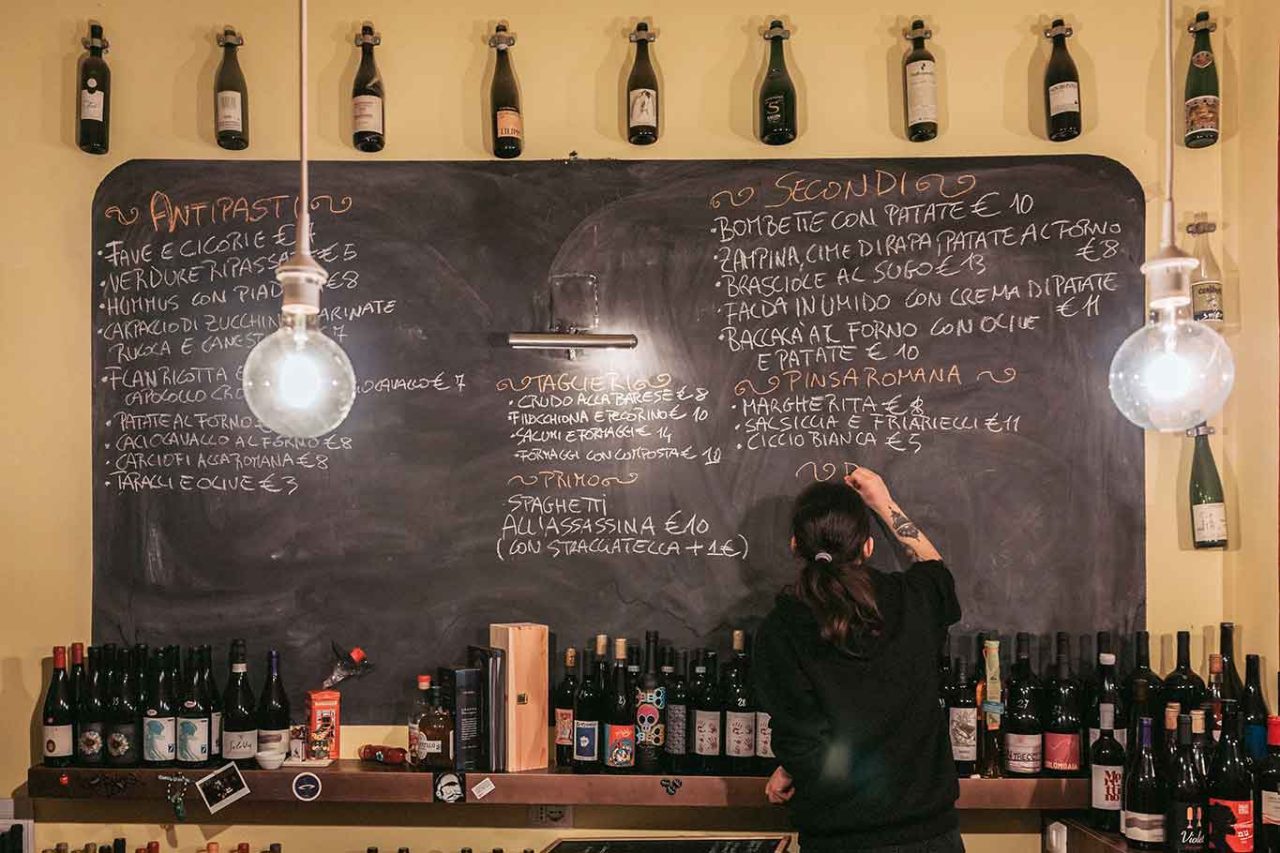 ANTIPASTI
FAVE E CICORIE €
VERDURE RIPASSA € 5
HUMMUS CON PIAD €8
CARPACCIO DI ZUCCHIN MARINATE
RUCOLA E CANEST 7
FLAN RICOTTA E
CAPOCOLLO CRO CIOCAVALLO € 7
PATATE AL FORNO €
CACIOCAVALLO AL FORNO €8
CARCIOFI ALLA ROMANA €8
TARALLI E OLIVE €3
TAGLIERI
CRUDO ALLA BARESE €8
FINOCCHIONA E PECORINO € 10
SALUMI E FORMAGGI € 14
FORMAGGI CON COMPOSTA € 10
PRIMO
SPAGHETTI
ALL'ASSASSINA €10
(CON STRACCIATELLA + 1€)
SECONDI
BOMBETTE CON PATATE € 10
ZAMPINA, CIME DI RAPA, PATATE AL FORNO
€8
BRASCIOLE AL SUGO € 13
FALDA IN UMIDO CON CREMA DI PATATE
€ 11
BACCALÀ AL FORNO CON OLIVE
E PATATE € 10
PINSA ROMANA
MARGHERITA € 8
SALSICCIA E FRIARIELLI €11
CICCIO BIANCA €5
D